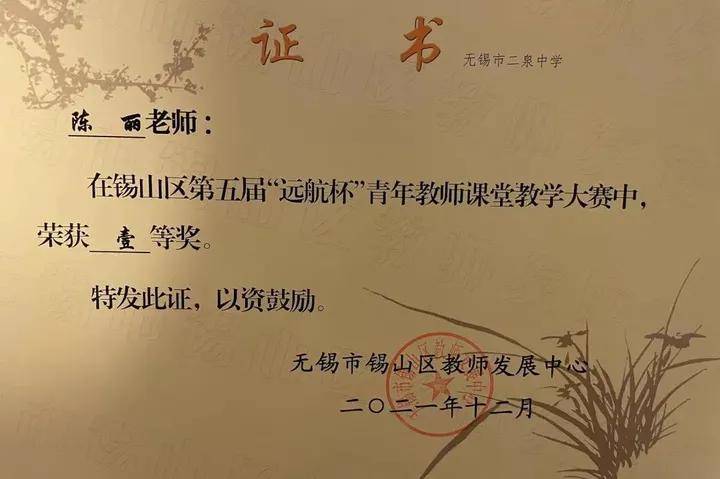 证 书
无锡市二泉中学
陈 丽老师：
在锡山区第五届“远航杯”青年教师课堂教学大赛中，
荣获 壹 等奖。
特发此证，以资鼓励。
无锡市锡山区教师发展中心
二〇二一年十二月
无锡市锡山区教师发展中心